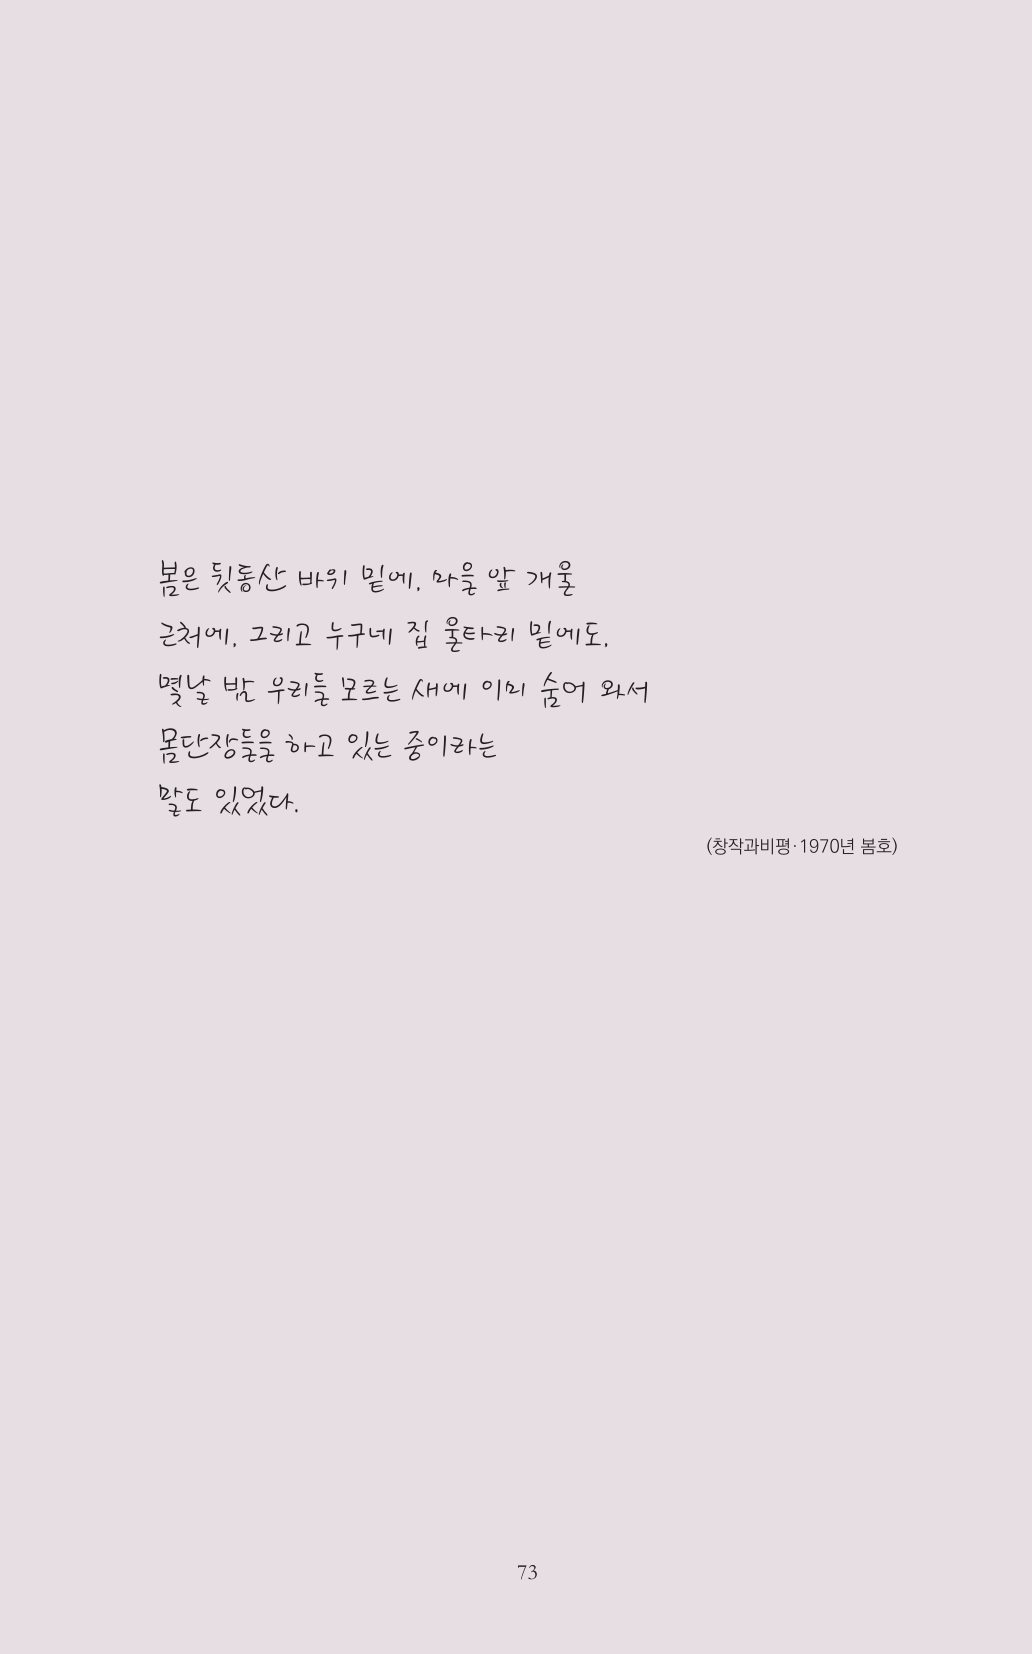 봄은 뒷동산 바위 밑에, 마을 앞 개울
근처에, 그리고 누구네 집 울타리 밑에도,
몇날 밤 우리들 모르는 새에 이미 숨어 와서
몸단장들을 하고 있는 중이라는
말도 있었다.
(창작과비평·1970년 봄호)
73